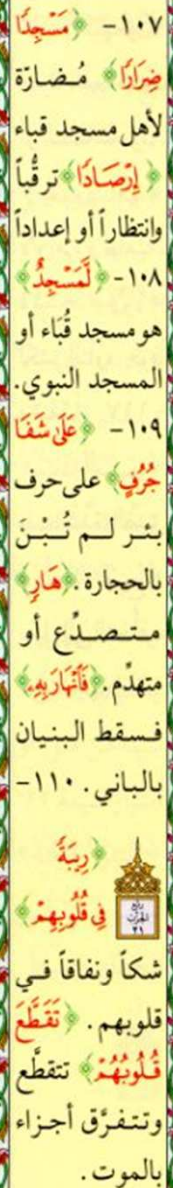 ١٠٧- ﴿مَسْجِدًا
ضِرَارًا﴾ مُضارّة
لأهل مسجد قباء
﴿إِرْصَادًا﴾ ترقُّباً
وانتظاراً أو إعداداً
١٠٨- ﴿لَّمَسْجِدٌ﴾
هو مسجد قُبَاء أو
المسجد النبوي.
١٠٩- ﴿عَلَىٰ شَفَا
جُرُفٍ﴾ على حرف
بئر لم تُبْنَ
بالحجارة. ﴿هَارٍ﴾
متصدِّع أو
متهدِّم. ﴿فَانْهَارَ بِهِ﴾
فسقط البنيان
بالباني. ١١٠-
﴿رِيبَةً
فِي قُلُوبِهِمْ﴾
شكاً ونفاقاً في
قلوبهم. ﴿تَقَطَّعَ
قُلُوبُهُمْ﴾ تتقطَّع
وتتفرَّق أجزاء
بالموت.